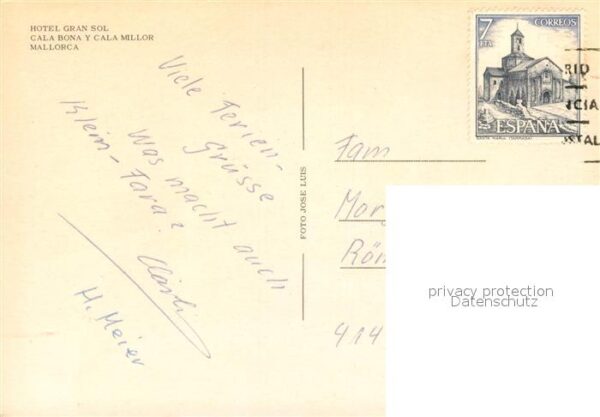 HOTEL GRAN SOL
CALA BONA Y CALA MILLOR
MALLORCA
Viele Ferien-
Grüsse
Was macht auch
Klein-Tara?
H. Meier
FOTO JOSE LUIS
7
PTA
CORREOS
ESPAÑA
RID
NCIA
STAL
Fam
Mor
Röm
414
privacy protection
Datenschutz